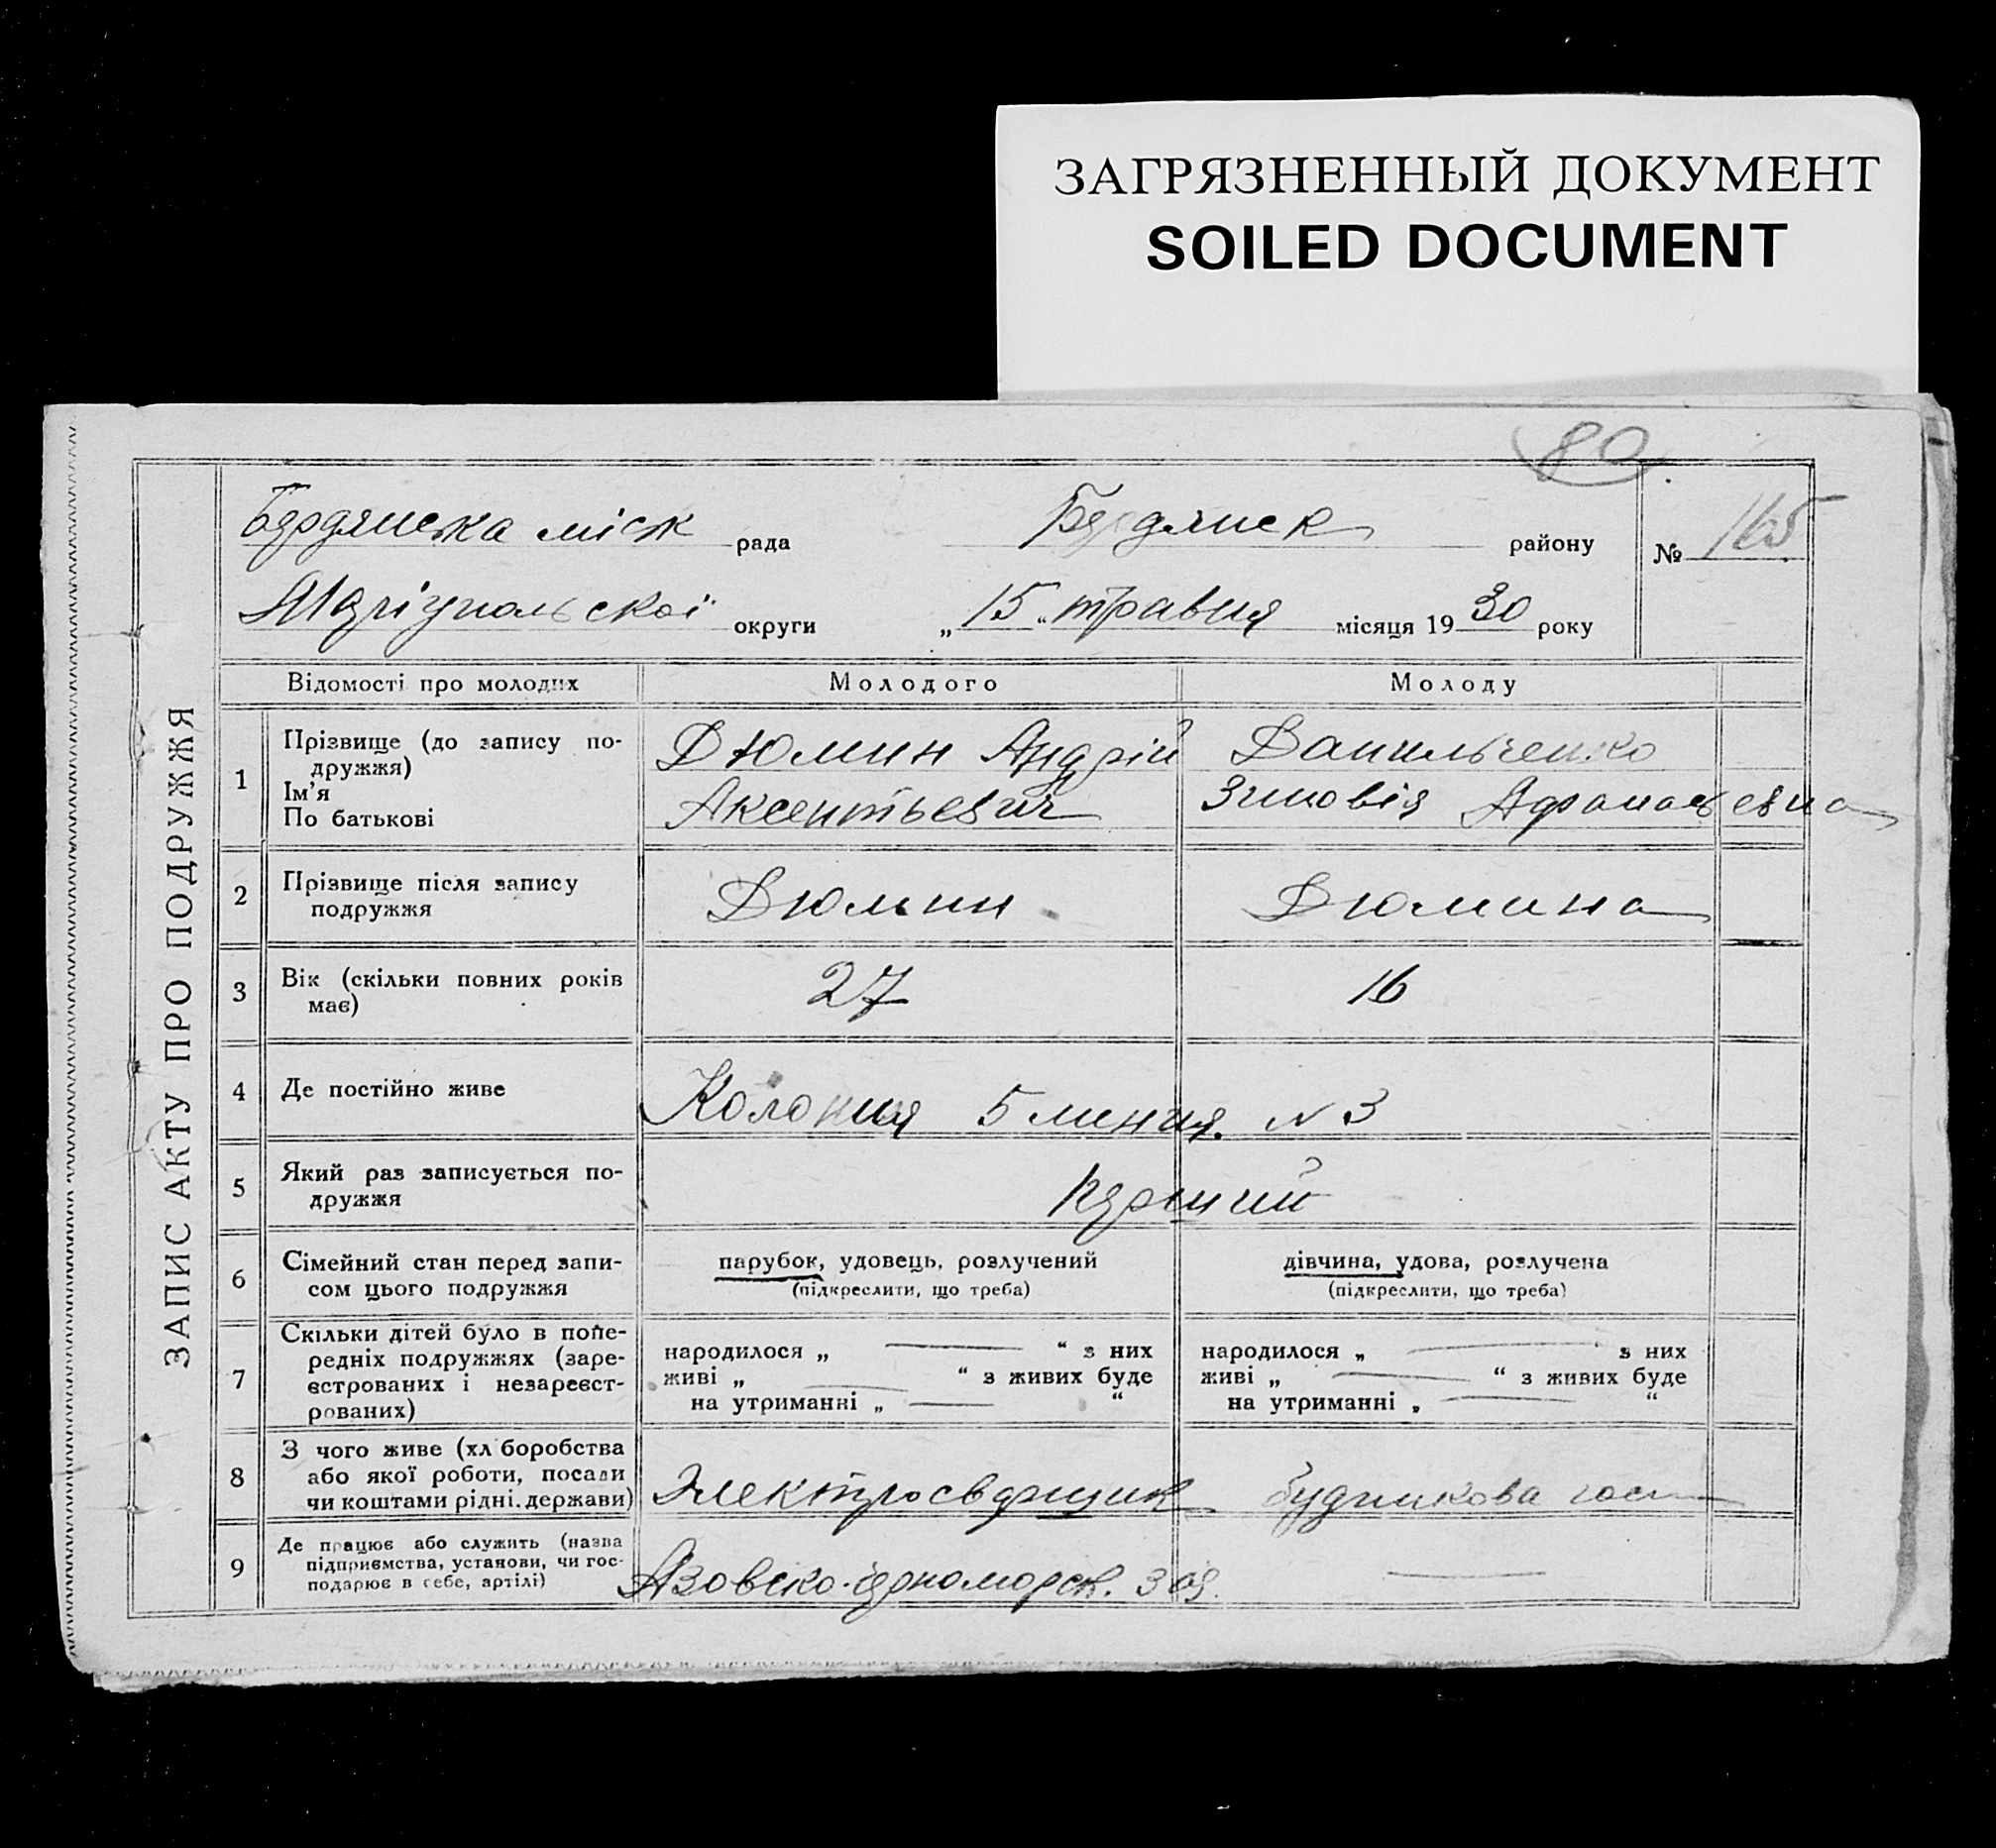 ЗАГРЯЗНЕННЫЙ ДОКУМЕНТ
SOILED DOCUMENT
80
ЗАПИС АКТУ ПРО ПОДРУЖЖЯ
Бердянська міск рада Бердянск району № 165
Маріупольскої округи „15“ травня місяця 1930 року
Відомості про молодих Молодого Молоду
1 Прізвище (до запису по-
дружжя)
Ім'я
По батькові
Дюмин Андрій
Аксентьевич
Данильченко
Зиновія Афанасьевна
2 Прізвище після запису
подружжя
Дюмин Дюмина
3 Вік (скільки повних років
має)
27 16
4 Де постійно живе Колония 5 линия. N 3
5 Який раз записується по-
дружжя
Перший
6 Сімейний стан перед запи-
сом цього подружжя
парубок, удовець, розлучений
(підкреслити, що треба)
дівчина, удова, розлучена
(підкреслити, що треба)
7 Скільки дітей було в попе-
редніх подружжях (заре-
єстрованих і незареєст-
рованих)
народилося „ “ з них
живі „ “ з живих буде
на утриманні „ “
народилося „ “ з них
живі „ “ з живих буде
на утриманні „ “
8 З чого живе (хл боробства
або якої роботи, посади
чи коштами рідні, держави)
Электросварщик
9 Де працює або служить (назва
підприємства, установи, чи гос-
подарює в себе, артілі)
Азовско-